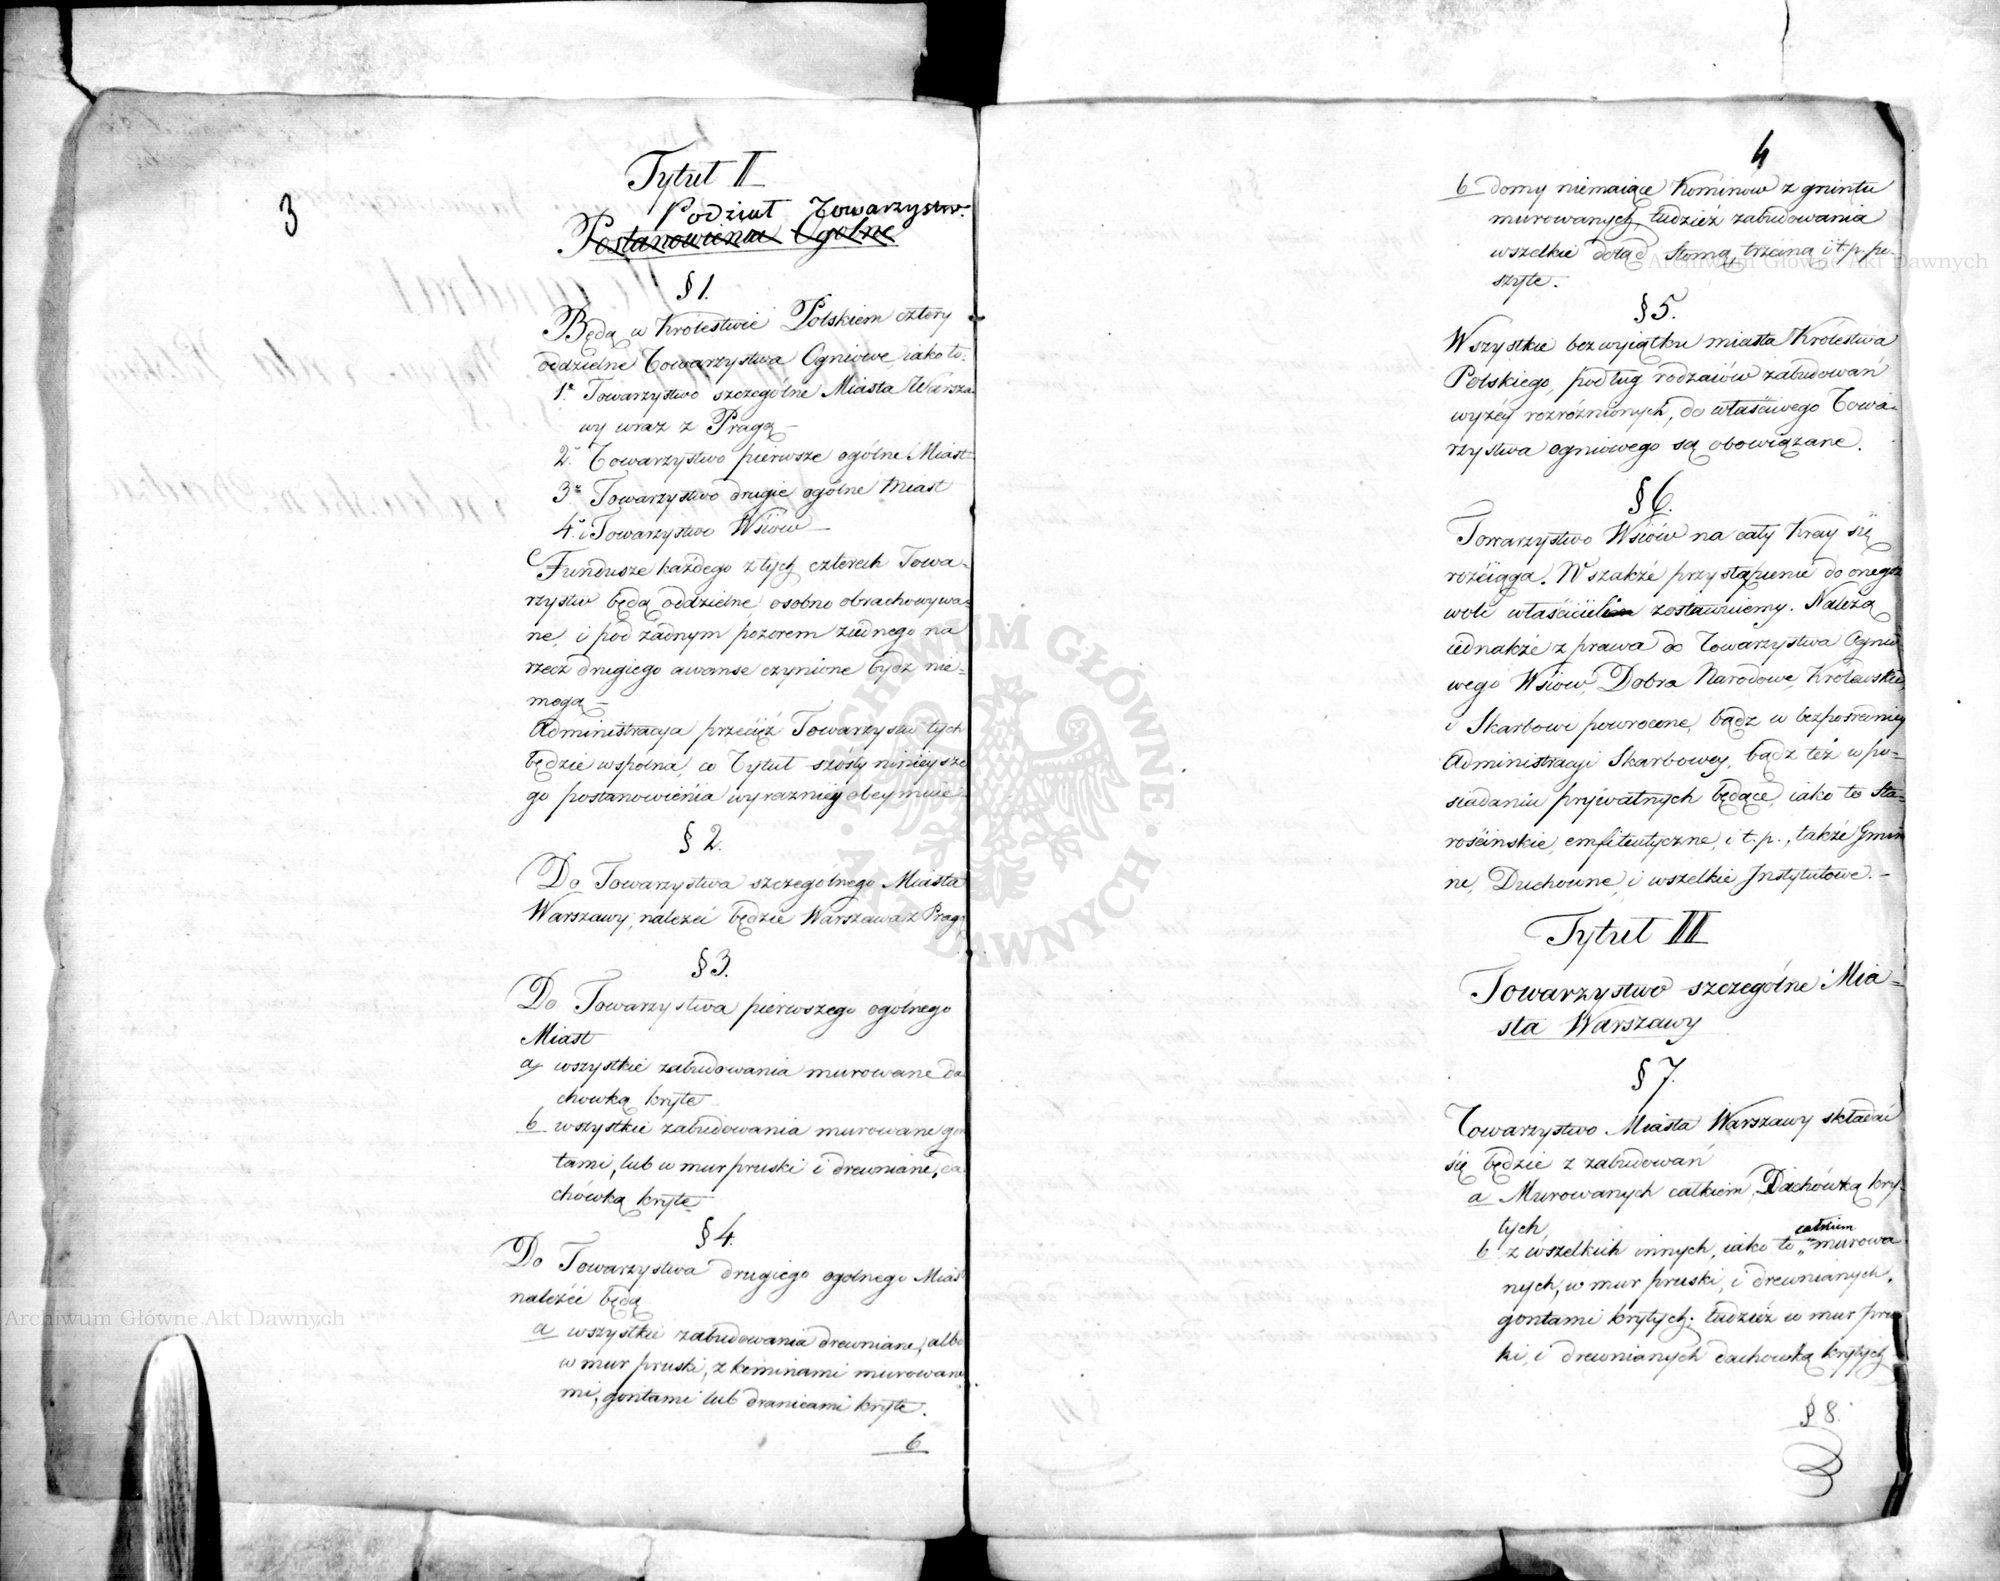 3
Tytuł II
Podział Towarzystw.
Postanowienia Ogólne
§ 1.
Będą w Królestwie Polskiem cztery
oddzielne Towarzystwa Ogniowe, iako to:
1e. Towarzystwo szczególne Miasta Warsza
wy wraz z Pragą –
2e. Towarzystwo pierwsze ogólne Miast
3e. Towarzystwo drugie ogólne Miast
4e. i Towarzystwo Wsiów –
Fundusze każdego z tych czterech Towa-
rzystw będą oddzielne osobno obrachowywa-
ne, i pod żadnym pozorem z iednego na
rzecz drugiego awanse czynione bydź nie-
mogą –
Administracya przecięż Towarzystw tych
będzie wspólna, co Tytuł szósty ninieysze
go postanowienia wyrazniey obeymuie –
§ 2.
Do Towarzystwa szczególnego Miasta
Warszawy, należeć będzie Warszawa z Pragą
§ 3.
Do Towarzystwa pierwszego ogólnego
Miast
a, wszystkie zabudowania murowane da
chówką kryte
b wszystkie zabudowania murowane gon
tami, lub w mur pruski i drewniane, da
chówką kryte
§ 4.
Do Towarzystwa drugiego ogólnego Miast
należeć będą
a wszystkie zabudowania drewniane, albo
w mur pruski, z kominami murowane
mi, gontami lub dranicami kryte.
b
4
b domy niemaiące Kominów z gruntu
murowanych, tudzież zabudowania
wszelkie dotąd słomą, trzciną i t. p. po-
szyte.
§ 5.
Wszystkie bez wyiątku miasta Królestwa
Polskiego, podług rodzaiów zabudowań
wyżéy rozróżnionych, do właściwego Towa-
rzystwa ogniowego są obowiązane.
§ 6.
Towarzystwo Wsiów na cały Kray się
rozciąga. Wszakże przystąpienie do onegoż
woli właścicieli zostawuiemy. Należą
iednakże z prawa do Towarzystwa Ognio
wego Wsiów, Dobra Narodowe, Królewskie,
i Skarbowi powrócone, bądź w bezpośredniey
Administracyi Skarbowey, bądź też w po-
siadaniu prywatnych będące, iako to Sta-
rościnskie, emfiteutyczne, i t. p., także Gmin
ne, Duchowne, i wszelkie Instytutowe. –
Tytuł III
Towarzystwo szczególne Mia-
sta Warszawy
§ 7.
Towarzystwo Miasta Warszawy składać
się będzie z zabudowań
a Murowanych całkiem, Dachówką kry-
tych,
całkiem
b z wszelkich innych, iako to murowa
nych, w mur pruski, i drewnianych,
gontami krytych; tudzież w mur prus
ki, i drewnianych dachówką krytych
§ 8.
Archiwum Główne Akt Dawnych
Archiwum Główne Akt Dawnych
ARCHIWUM GŁÓWNE AKT DAWNYCH